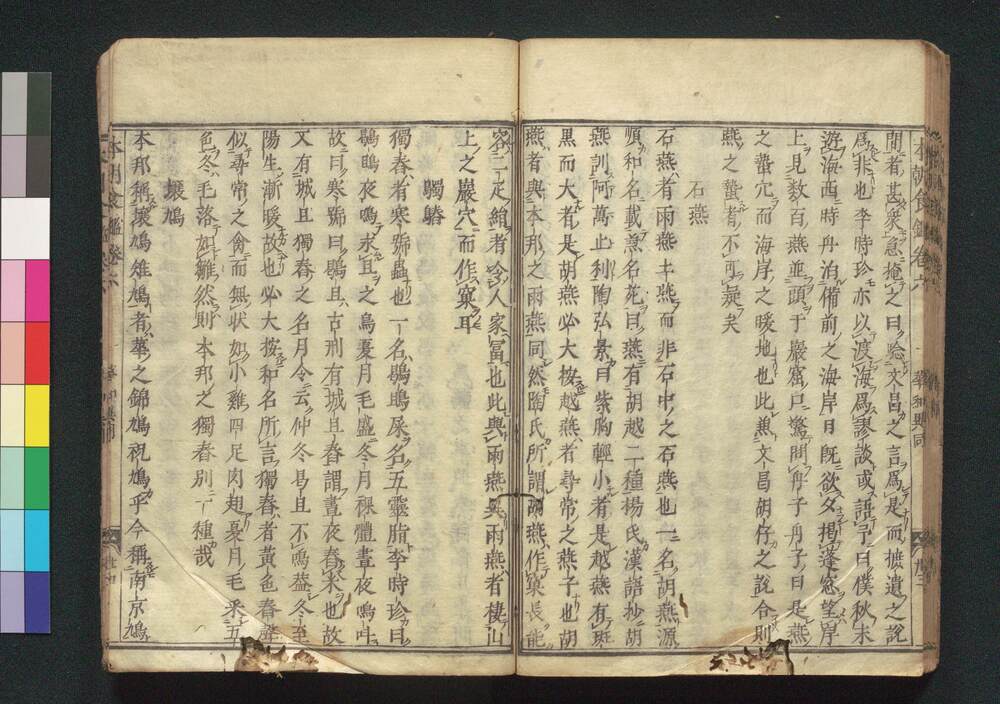 本朝食鑑卷六
華和異同
間者甚衆急掩之曰唸文昌之言爲是而摭遺之說
爲非也李時珍亦以渡海爲謬談或語予曰僕秋末
遊海西時舟泊備前之海岸日既欲夕掲蓬窓望岸
上見數百燕並頭于巖窟口驚問舟子舟子曰是燕
之蟄穴而海岸之暖地也此焦文昌胡仔之說合則
燕之蟄者不可疑矣
石燕
石燕者雨燕土燕而非石中之石燕也一名胡燕源
順和名載焉名苑曰燕有胡越二種楊氏漢語抄胡
燕訓阿萬止利陶弘景曰紫胸輕小者是越燕有斑
黒而大者是胡燕必大按越燕者尋常之燕子也胡
燕者與本邦之雨燕同然陶氏所謂胡燕作窠長能
容二疋絹者令人家冨也此與雨燕異雨燕者棲山
上之巖穴而作窠耳
獨春
獨春者寒號蟲也一名鶡鴠屎名五靈脂李時珍曰
鶡鴠夜鳴求旦之鳥夏月毛盛冬月裸體晝夜鳴叫
故曰寒號曰鶡旦古刑有城旦舂謂晝夜舂米也故
又有城旦獨舂之名月令云仲冬曷旦不鳴蓋冬至
陽生漸暖故也必大按和名所言獨舂者黃色春聲
似尋常之
而無
狀如小雞四足肉翅夏月毛采五
色冬毛落如雛然則本邦之獨舂別一種哉
壌鳩
本邦稱壌鳩雉鳩者華之錦鳩祝鳩乎今稱南京鳩
本朝食鑑卷六